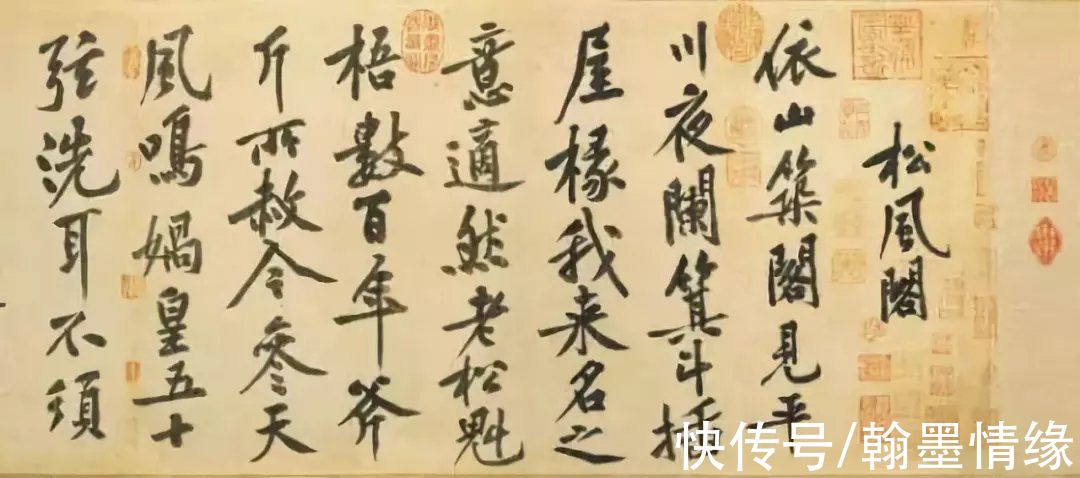 松風閣
依山築閣見平
川夜闌箕斗插
屋椽我来名之
意適然老松魁
梧數百年斧
斤所赦今參天
風鳴媧皇五十
弦洗耳不須
快传号/翰墨情缘